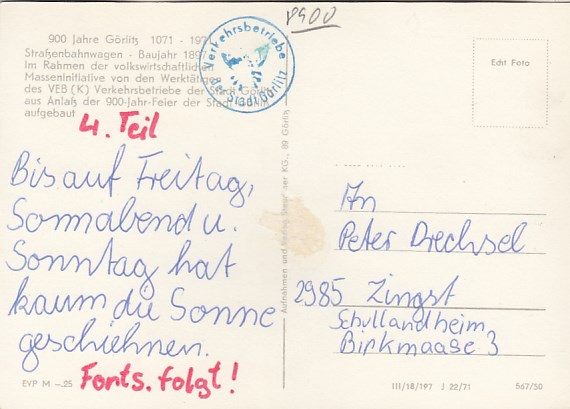 8900
900 Jahre Görlitz 1071 - 197
Straßenbahnwagen - Baujahr 189
Im Rahmen der volkswirtschaftlichen
Masseninitiative von den Werktätigen
des VEB (K) Verkehrsbetriebe der Stadt Görlitz
aus Anlaß der 900-Jahr-Feier der Stadt
aufgebaut
Verkehrsbetriebe
der Stadt Görlitz
Echt Foto
4. Teil
Bis auf Freitag,
Sonnabend u.
Sonntag hat
kaum die Sonne
geschiehnen.
Fonts. folgt!
Aufnahmen und Verlag KG., 89 Görlitz
An
Peter Drechsel
2985 Zingst
Schullandheim,
Birkmaase 3
EVP M -.25
III/18/197 J 22/71 567/50